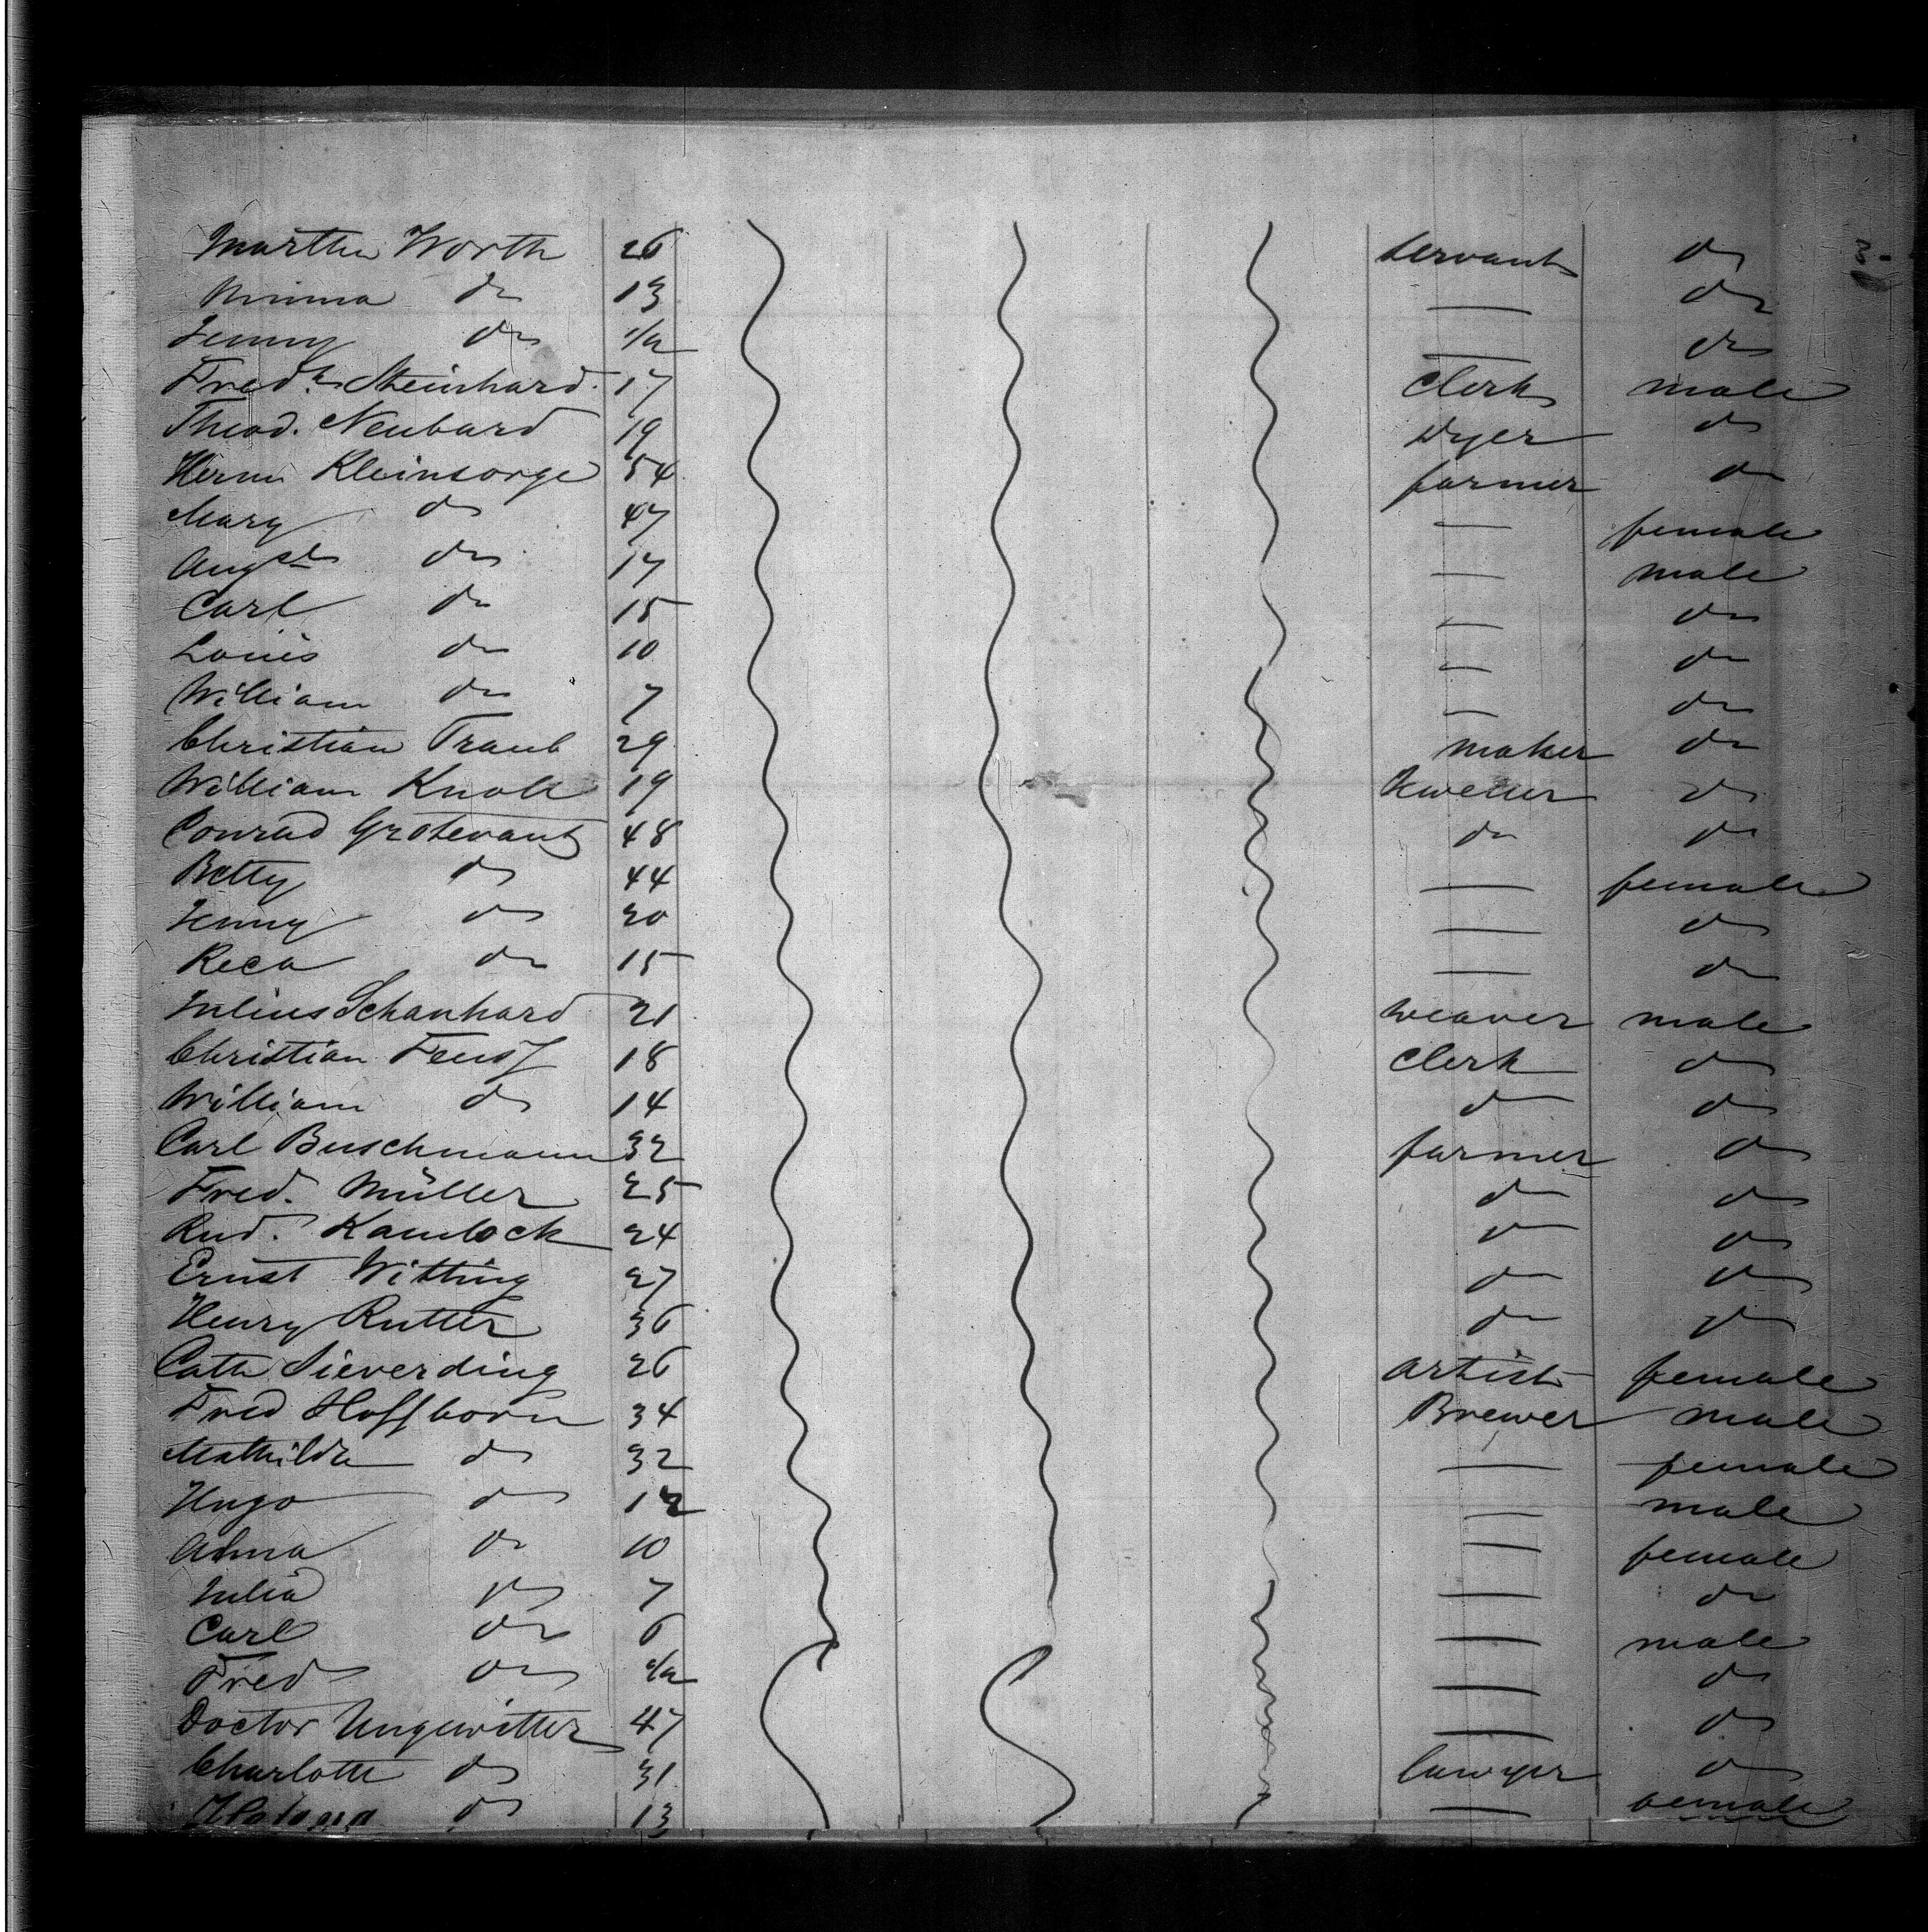 Martha Worth 26 servant do
Minna do 13 — do
Jenny do — do
Fredk Steinhard 17 Clerk male
Theod. Neubard 19 Dyer do
Herm Kleinsorge 54 farmer do
Mary do 47 — female
Augst do 17 — male
Carl do 15 — do
Louis do 10 — do
William do 7 — do
Christian Traub 29 maker do
William Knoll 19 do
Conrad Grotevant 48 do do
Betty do 44 — female
Jenny do 20 — do
Reca do 15 — do
Julius Schanhard 21 weaver male
Christian Feust 18 Clerk do
William do 14 do do
Carl Buschmann 32 farmer do
Fred. Müller 25 do do
Rud. 24 do do
Ernst Witting 27 do do
Henry Rutter 36 do do
Cath Sieverding 26 artist female
Fred Hoffborn 34 Brewer male
Mathilda do 32 — female
Hugo do 12 — male
Alma do 10 — female
Julia do 7 — do
Carl do 6 — male
Fred do — do
Doctor Ungewitter 47 — do
Charlotte do 31 lawyer do
do 13 — female